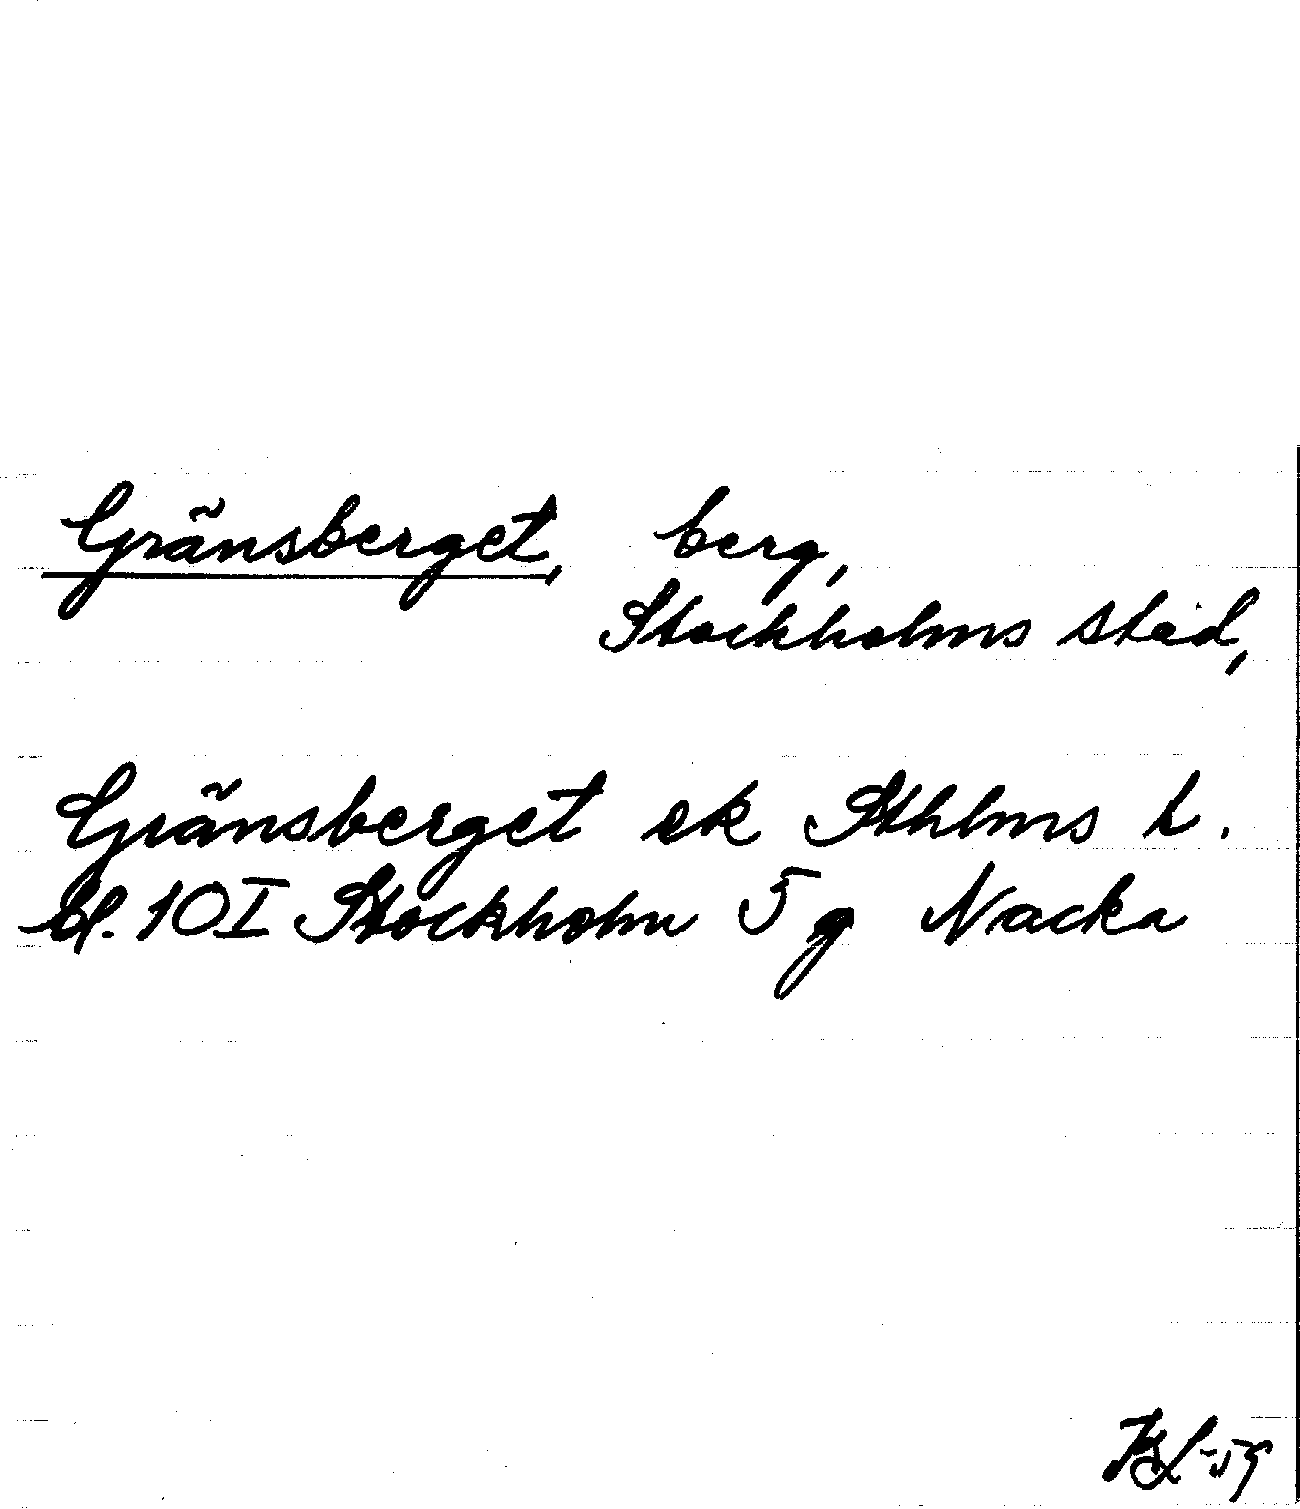 Gränsberget, berg,
Stockholms stad,
Gränsberget ek Sthlms L.
bl. 10I Stockholm 5g Nacka